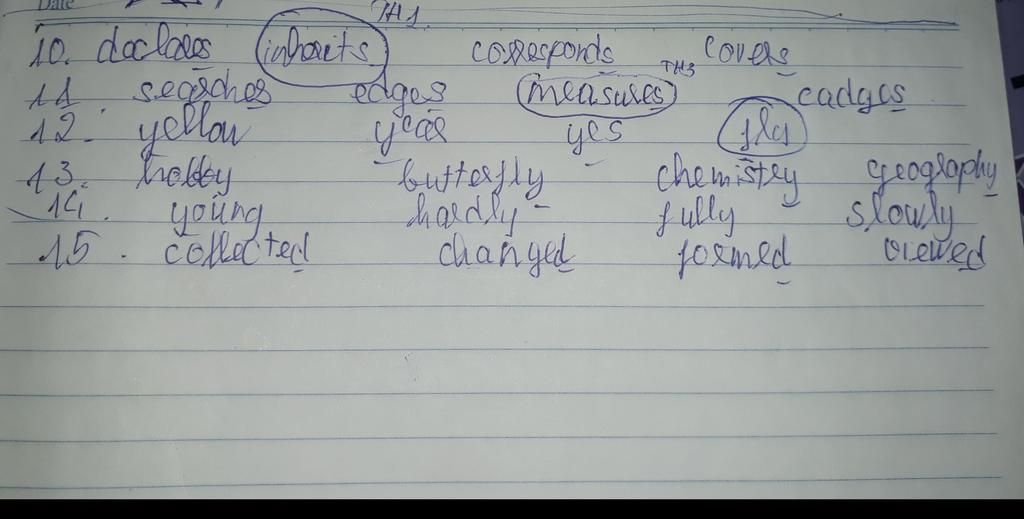 Date
TH1.
10. declares inherits corresponds covers
11. searches edges measures TH3 cadges
12. yellow year yes fly
13. hobby butterfly chemistry geography
14. young hardly fully slowly
15. collected changed formed viewed